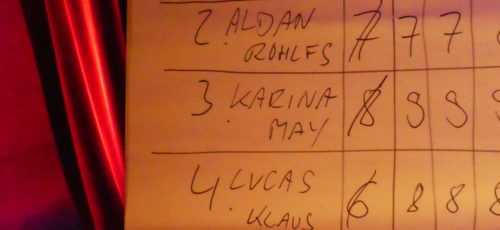 2. ALDAN 7 7 7
ROHLFS
3. KARINA 8 9 9
MAY
4. LUCAS 6 8 8 8
KLAUS